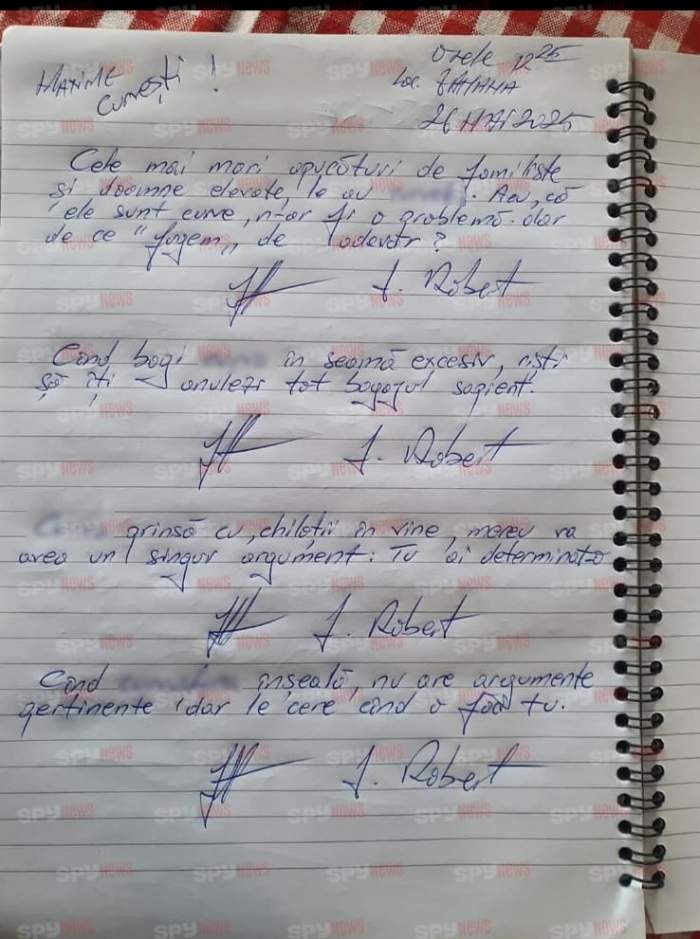 Orele 12 25
MAXIME Curvești !
Loc. BAHAMA
26 MAI 2025
Cele mai mari apucături de familiste
și doamne elevate, le au . Au, că
ele sunt curve, n-ar fi o problemă dar
de ce "fugem„ de adevăr?
J. Robert
Când bagi în seamă excesiv, riști
să îți anulezi tot bagajul sapient.
J. Robert
prinsă cu, chiloții în vine, mereu va
avea un singur argument: Tu ai determinat-o
J. Robert
Când înșeală, nu are argumente
pertinente, dar le cere când o faci tu.
J. Robert
SPY NEWS